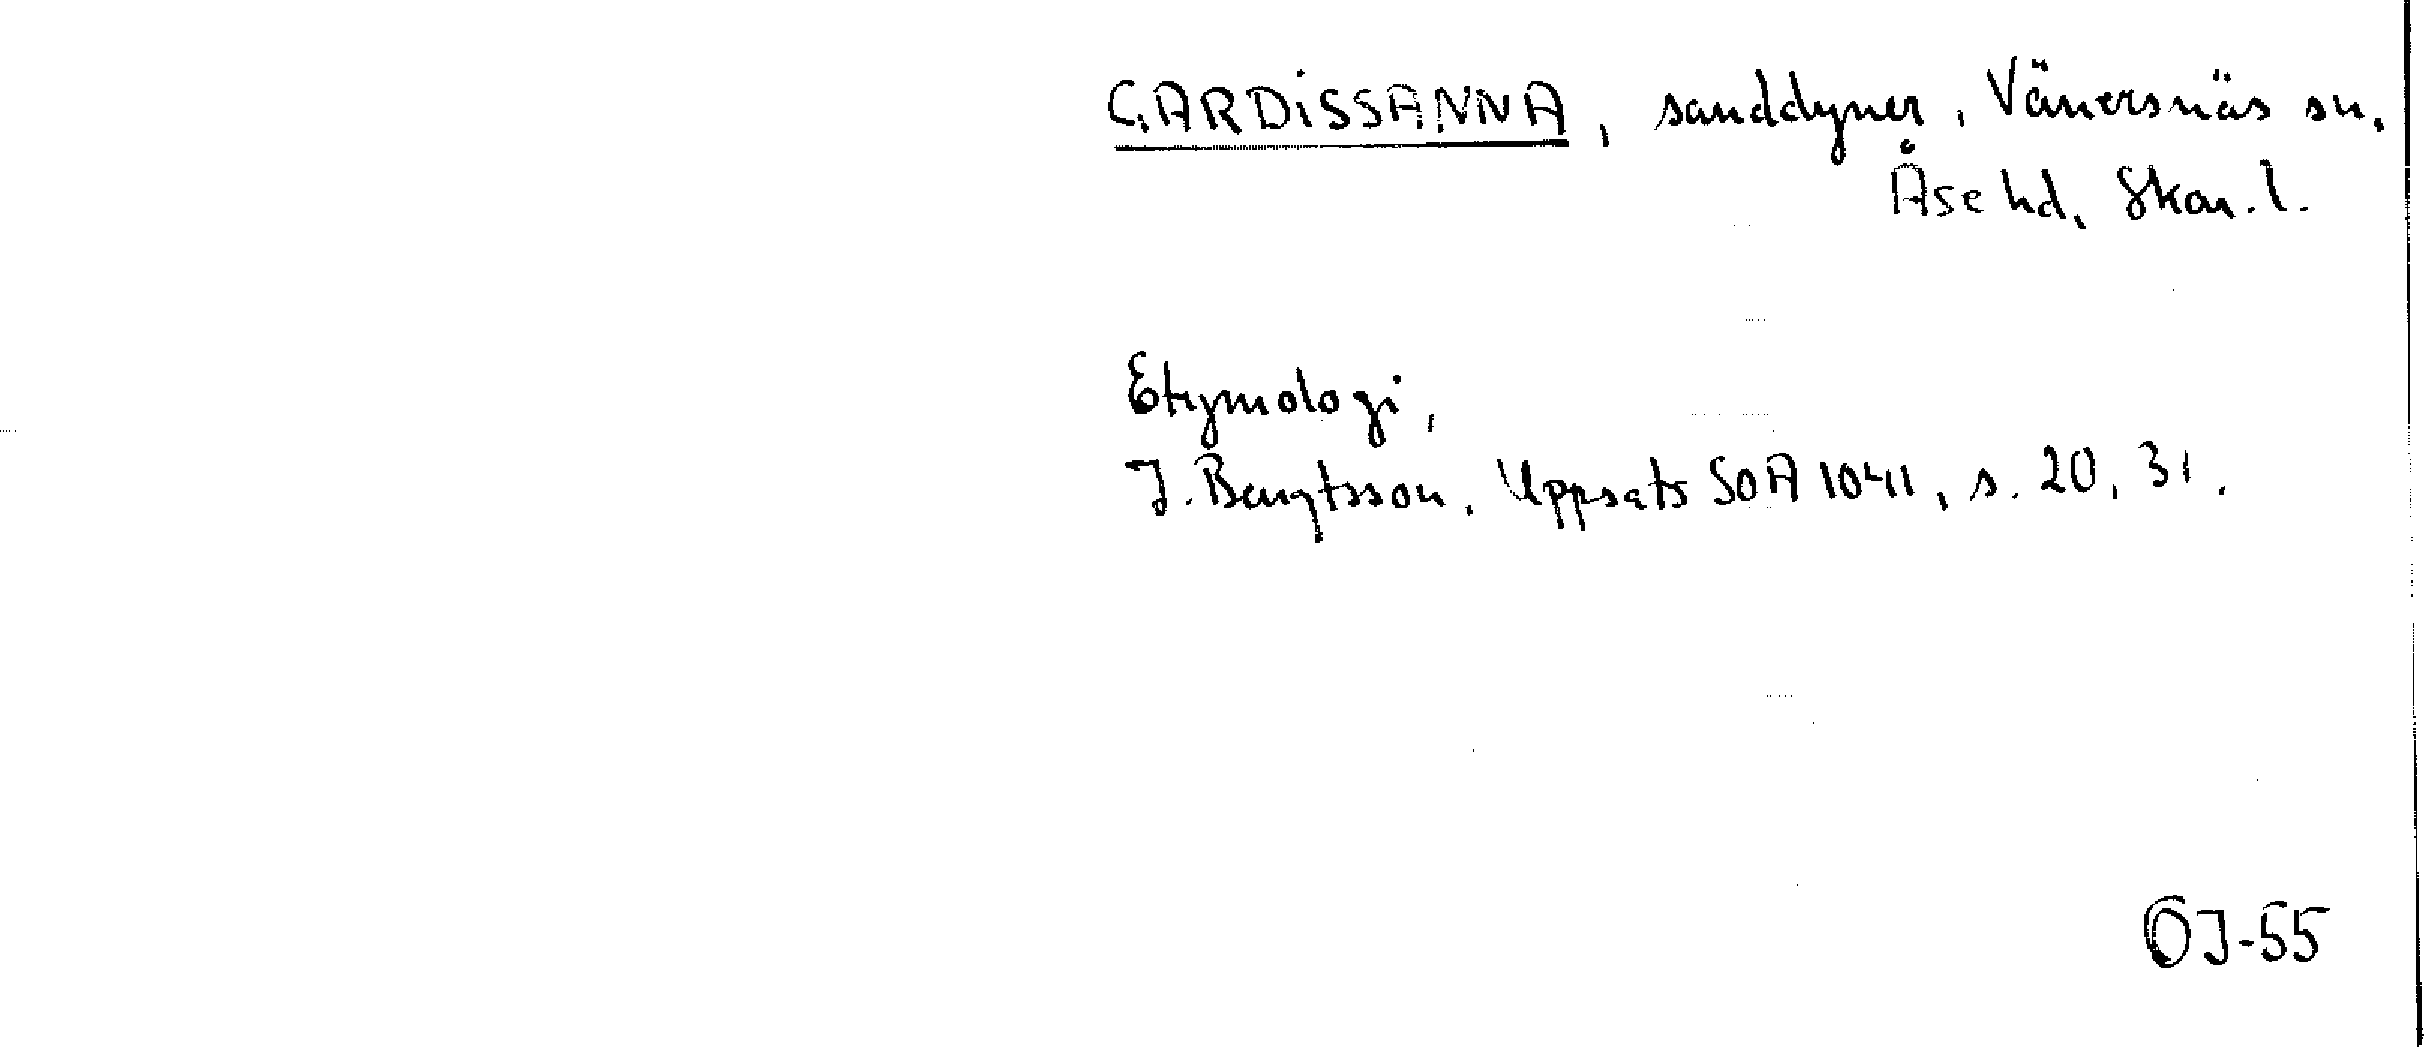 GARDISSANNA, sanddyner, Vänersnäs sn.
Åse hd, Skar. l.
Etymologi,
J. Bengtsson, Uppsats SOA 1041, s. 20, 31.
OJ-55